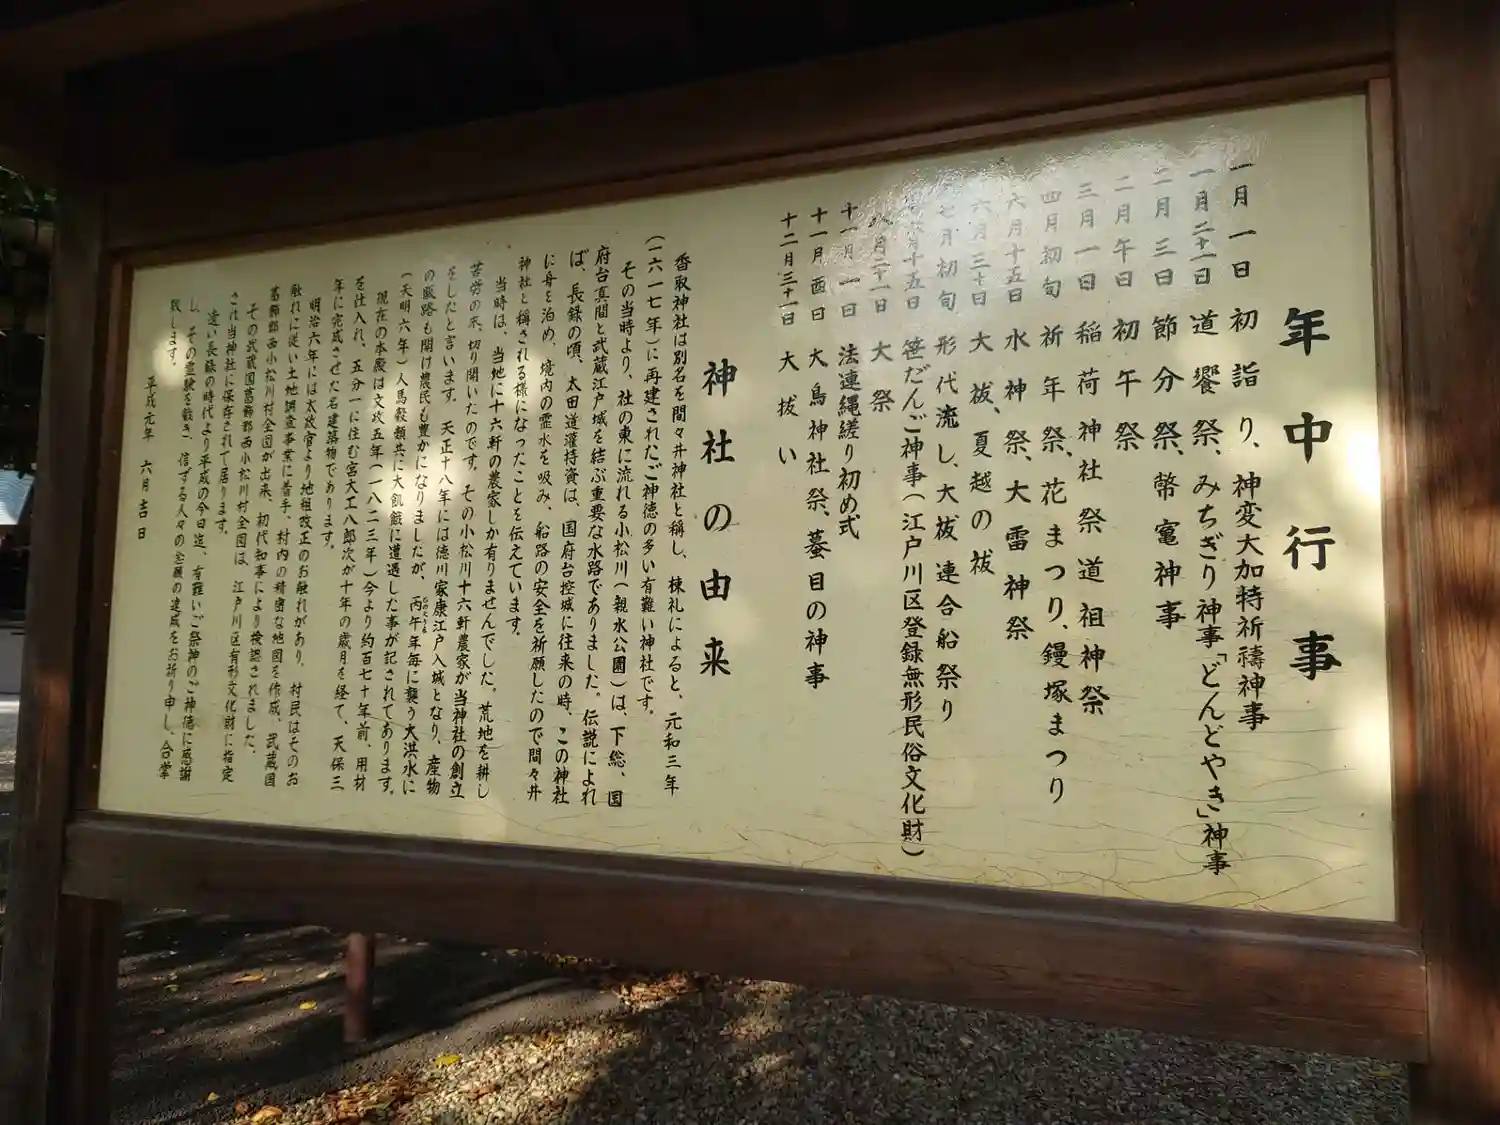 年中行事
一月一日 初詣り、神変大加特祈禱神事
一月二十一日 道饗祭、みちぎり神事「どんどやき」神事
二月三日 節分祭、幣竃神事
二月午日 初午祭
三月一日 稲荷神社祭道祖神祭
四月初旬 祈年祭、花まつり、鏝塚まつり
六月十五日 水神祭、大雷神祭
六月三十日 大祓、夏越の祓
七月初旬 形代流し、大祓連合船祭り
月十五日 笹だんご神事(江戸川区登録無形民俗文化財)
月二十一日 大祭
十一月一日 法連縄縒り初め式
十一月酉日 大鳥神社祭、蟇目の神事
十二月三十一日 大祓い
神社の由来
香取神社は別名を間々井神社と称し、棟礼によると、元和三年
(一六一七年)に再建されたご神徳の多い有難い神社です。
その当時より、社の東に流れる小松川(親水公園)は、下総、国
府台真間と武蔵江戸城を結ぶ重要な水路でありました。伝説によれ
ば、長録の頃、太田道灌持資は、国府台控城に往来の時、この神社
に舟を泊め、境内の霊水を吸み、船路の安全を祈願したので間々井
神社と称される様になったことを伝えています。
当時は、当地に十六軒の農家しか有りませんでした。荒地を耕し
苦労の末、切り開いたのです。その小松川十六軒農家が当神社の創立
をしたと言います。天正十八年には徳川家康江戸入城となり、産物
の販路も開け農民も豊かになりましたが、丙午年毎に襲う大洪水に
(天明六年)人馬穀類共に大飢饉に遭遇した事が記されてあります。
現在の本殿は文政五年(一八二三年)今より約百七十年前、用材
を仕入れ、五分一に住む宮大工八郎次が十年の歳月を経て、天保三
年に完成させた名建築物であります。
明治六年には太政官より地租改正のお触れがあり、村民はそのお
触れに従い土地調査事業に着手、村内の精密な地図を作成、武蔵国
葛飾郡西小松川村全図が出来、初代知事により検認されました。
その武蔵国葛飾郡西小松川村全図は、江戸川区有形文化財に指定
され当神社に保存されて居ります。
遠い長録の時代より平成の今日迄、有難いご祭神のご神徳に感謝
し、その霊験を戴き、信ずる人々の念願の達成をお祈り申し、合掌
致します。
平成元年 六月吉日